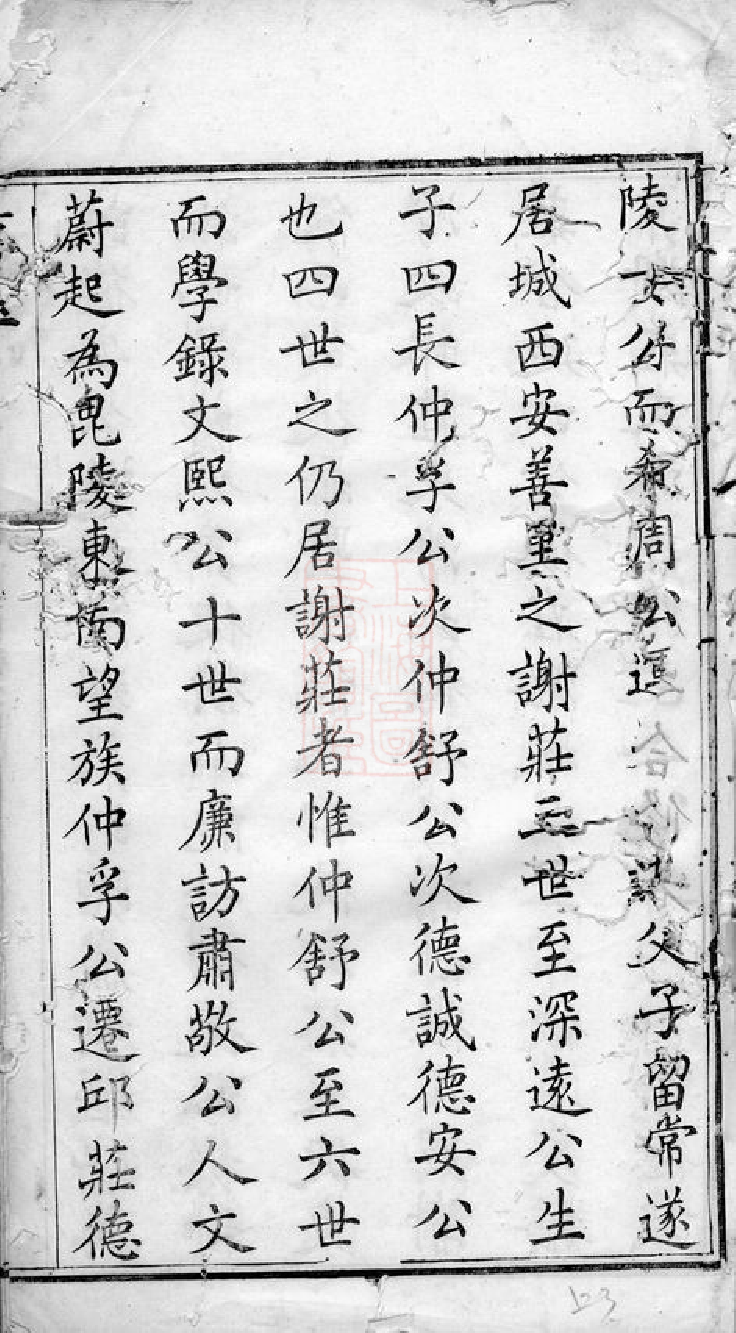 陵 公而希周公 父子留常遂
居城西安善里之謝莊三世至深遠公生
子四長仲孚公次仲舒公次德誠德安公
也四世之仍居謝莊者惟仲舒公至六世
而學錄文熙公十世而廉訪肅敬公人文
蔚起為毘陵東南望族仲孚公遷邱莊德